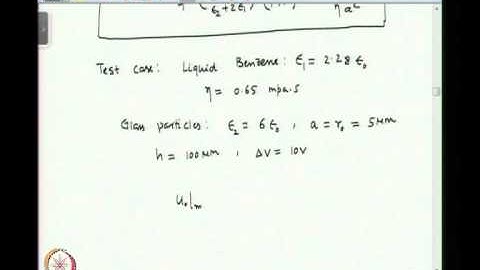 ε₂+2ε₁
η a²
Test case: Liquid Benzene: ε₁ = 2.28 ε₀
η = 0.65 mpa.s
Glass particles: ε₂ = 6 ε₀ , a = r₀ = 5 μm
h = 100 μm , ΔV = 10V
u₀|ₘ